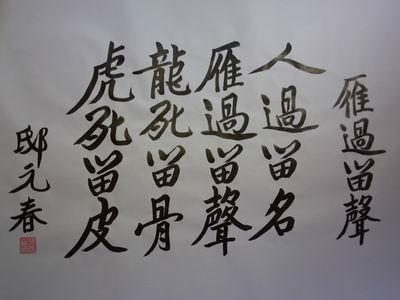 雁過留聲
人過留名
雁過留聲
龍死留骨
虎死留皮
邸元春